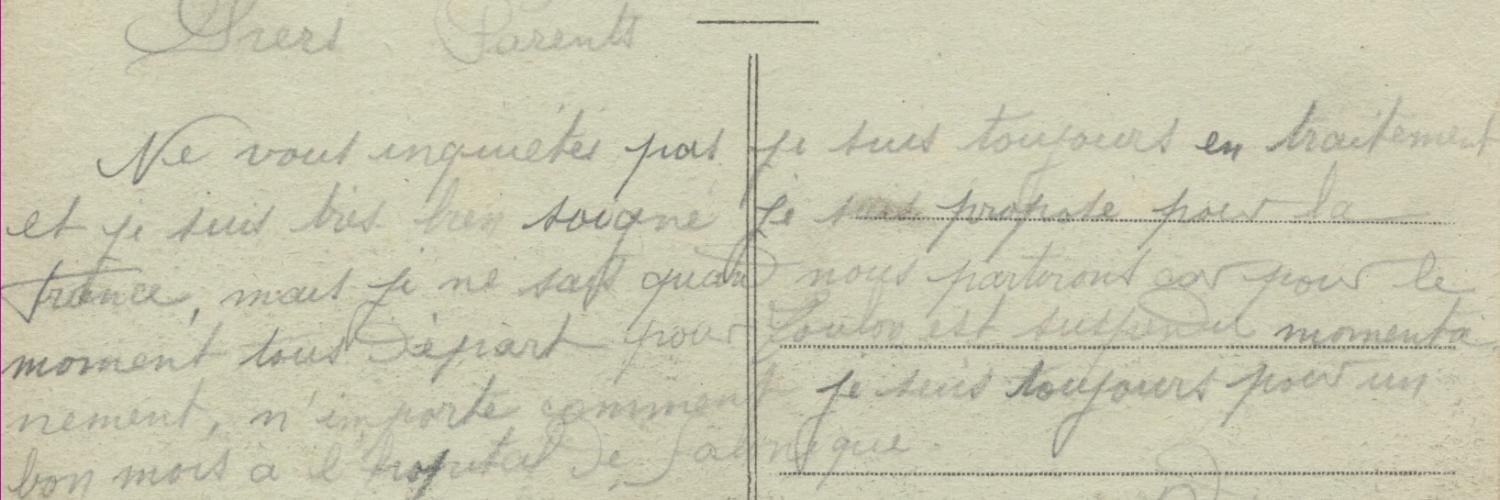 Chers Parents
Ne vous inquiétes pas je suis toujours en traitement
et je suis très bien soigné Je suis proposé pour la
France, mais je ne sais quand nous partirons car pour le
moment tous départ pour Toulon est suspendu momenta
nement, n'importe comment je suis toujours pour un
bon mois a l'hopital de Salonique.